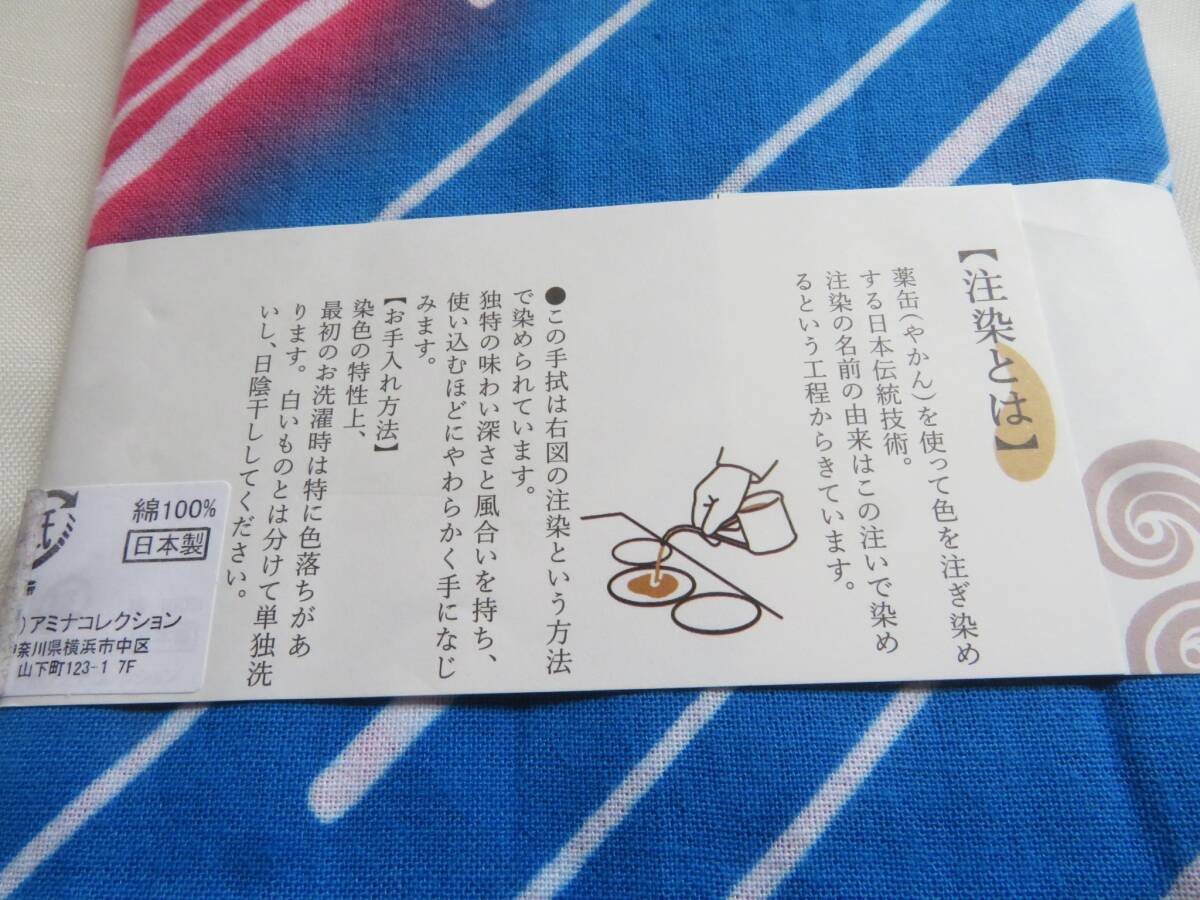 【注染とは】
薬缶(やかん)を使って色を注ぎ染め
する日本伝統技術。
注染の名前の由来はこの注いで染め
るという工程からきています。
●この手拭は右図の注染という方法
で染められています。
独特の味わい深さと風合いを持ち、
使い込むほどにやわらかく手になじ
みます。
【お手入れ方法】
染色の特性上、
最初のお洗濯時は特に色落ちがあ
ります。白いものとは分けて単独洗
いし、日陰干ししてください。
綿100%
日本製
)アミナコレクション
奈川県横浜市中区
山下町123-1 7F